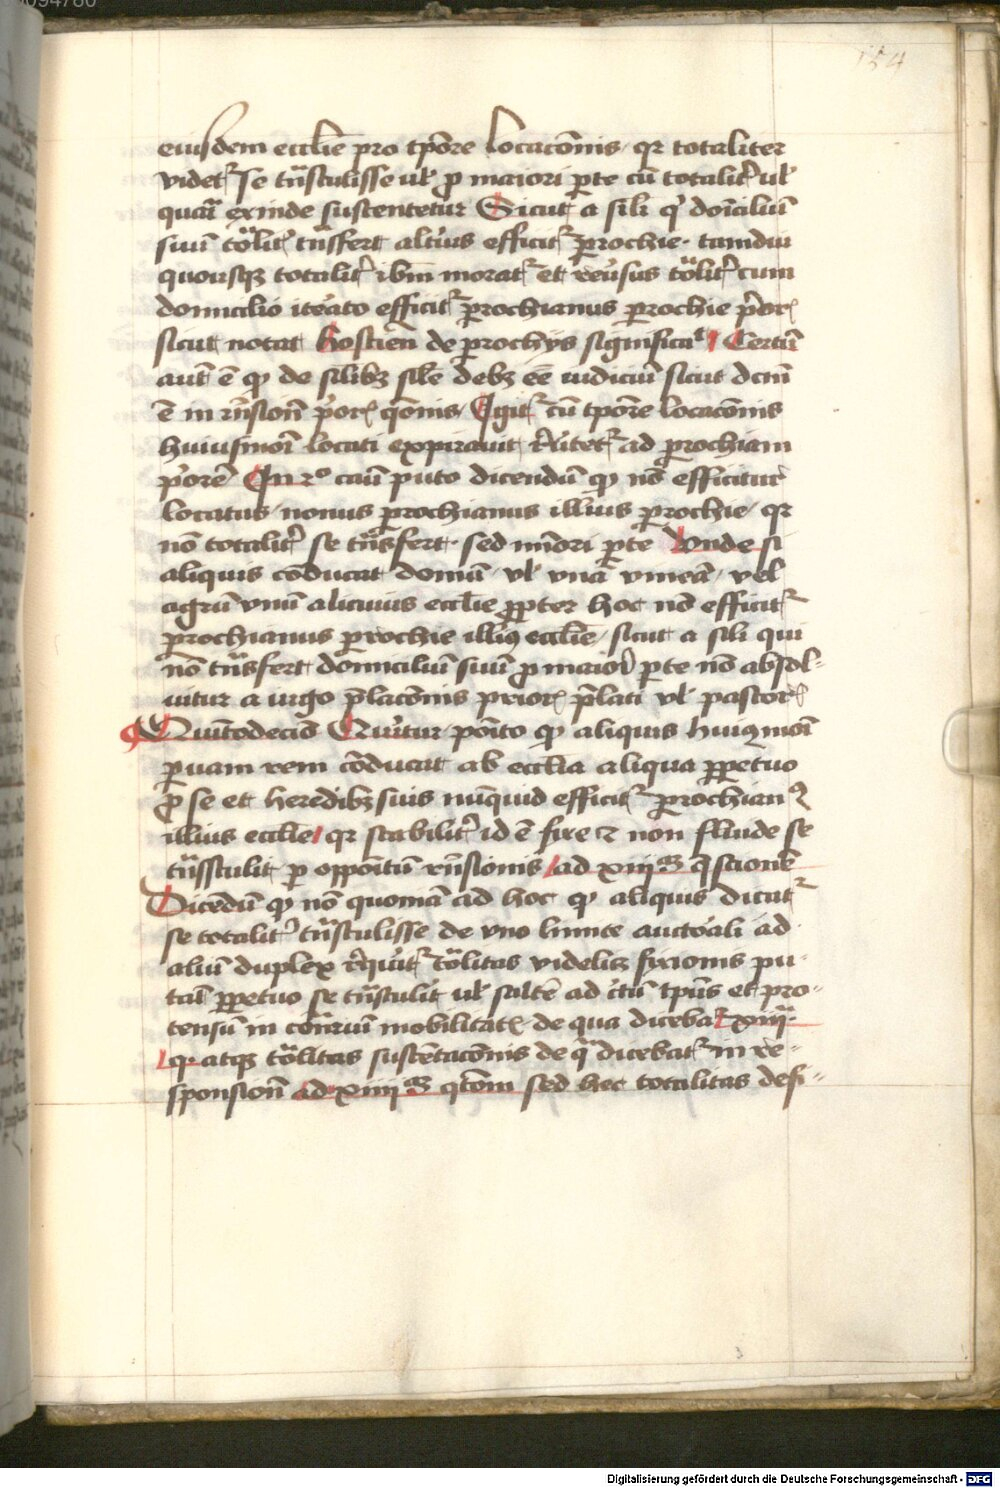 154
eiusdem eccłie pro tp̄ore locac̄onis qr totaliter
videtr se tn̄stulisse ul' p maiori p̄te cū totalitr ul'
qua exinde sustentetur Sicut a sili q' domiciliū
suū tōlitr tn̄sfert alt'ius efficitr prochie · tamdiu
quousqꝫ totalitr ibm moratr et reu'sus tōlitr cum
domicilio it'ato efficitr prochianus prochie p'or
sicut notat hostien̄ de prochijs significa Certū
aut ē qꝫ de silibꝫ sile debꝫ ee iudiciū sicut dcm̄
ē in rn̄sion̄ p'or qōnis Igitr cū tp̄ore locac̄onis
huiusmōi locati expirauit r'u'tetr ad prochiam
p'orē In rº cau puto dicendū qꝫ nō efficitur
locatus nouus prochianus illius prochie qr
nō totalitr se tn̄sfert · sed mīori p̄te Vnde si
aliquis conducat domū ul' vnā vineā vel
agrū vnū alicuius eccłie pp̄ter hoc nō efficitr
prochianus prochie illiꝰ eccłie sicut a sili qui
nō tn̄sfert domiciliū suū p maiori p̄te nō absol-
uitur a iugo p̄lac̄onis prior p̄lati ul' pastor
Quintodecīo Queritur pōito qꝫ aliquis huiꝰmōi
p̄uam rem cōducat ab eccłia aliqua pp̄etuo
p se et heredibꝫ suis nūquid efficitr prochianꝰ
illius eccłie qr stabilitr id ē fixe et non fluide se
tn̄sstulit p oppoītū rn̄sionis ad xiiij q̄stionē
Dicēdū qꝫ nō quoniā ad hoc qꝫ aliquis dicatr
se totalitr tn̄stulisse de vno limite auctōali ad
aliū duplex r'quiritr tōlitas videliꝫ fixionis pu-
ta pp̄etuo se tn̄stulit ul' saltē ad ctū tp̄us et pro-
tensū in cōtrariū mobilitatꝭ de qua dicebatr xiiij
q · atqꝫ tōlitas sustētac̄onis de qa dicebatr in re-
sponsion̄ ad xiiij qtōm sed hec totalitas defi-
Digitalisierung gefördert durch die Deutsche Forschungsgemeinschaft - DFG